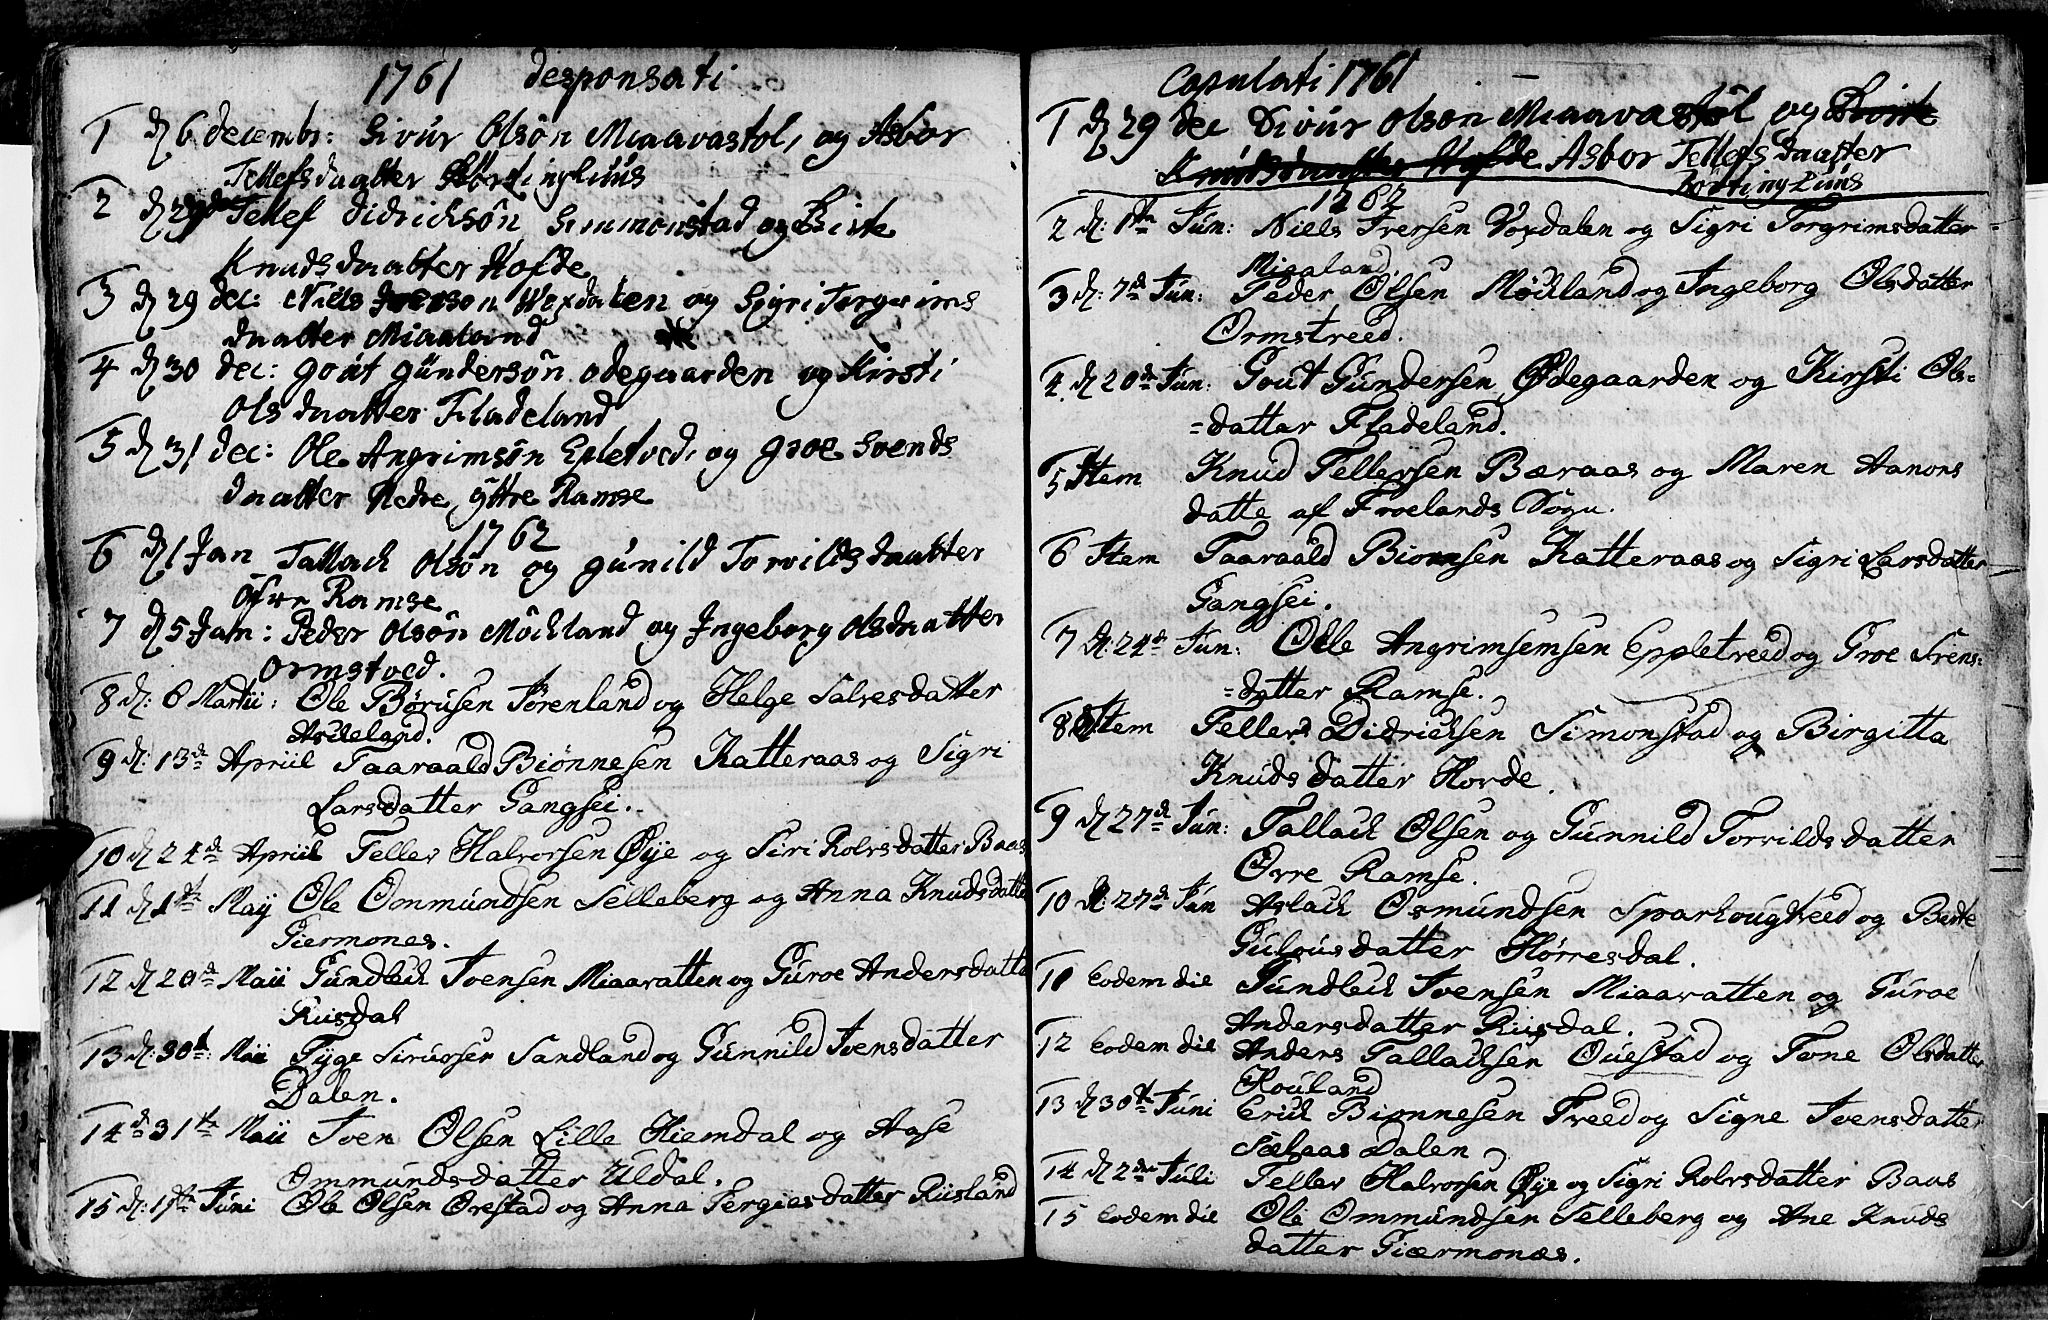 1761 desponsati
1 d 6 decembr: Sivur Olsön Miaavastöl, og Asbor
Tellefsdaatter
2 d 29 Tellef didricksön Simmonstad og Birte
Knudsdaatter Hofde
3 d 29 dec: Niels Iverson Voxdalen og Sigri Torgrims
daatter Miaaland
4 d 30 dec: goüt gündersön odegaarden og Kirsti
Olsdaatter Fladeland
5 d 31 dec: Ole Angrimsön Epletved, og groe Svends
daatter Nedre, ÿttre Ramse
1762
6 d 1 Jan Tallack olsön og günild Torvildsdaatter
öfvre Ramse
7 d 5 Jan: Peder olsön Möckland og Ingeborg olsdaatter
ormstved.
8 d: 6 Martii: Ole Börüsen Törenland og Helge Salvesdatter
Askeland.
9 d: 13de Apriil Taaraald Biönnesen Katteraas og Sigri
Larsdatter Gangsei.
10 d 24de Apriil Tellev Halvorsen Øÿe og Siri Rolvsdatter Baas
11 d 1te Maÿ Ole Ommündsen Selleberg og Anna Knudsdatte
Giermones.
12 d 20de Maii Gündleik Ivensen Miaavatten og Guroe Andersdatte
Riisdal
13 d: 30te: Maii Tÿge Sirursen Sandland og Günnild Ivensdatter
Dalen.
14 d 31te Maii Iven Olsen Lille Hiemdal og Aase
Ommundsdatter Uldal.
15 d: 1te Iüni Ole Olsen Ovestad og Anna Tergiesdatter Riisland
Copulati 1761
1 d 29 dec Sivur olson Miaavastøl og Birte
Knutsdaatter Hofde Asbor Tellefsdaatter
1762
2 d: 1te Iün: Niels Iversen Voxdalen og Sigri Torgrimsdatter
Miaaland.
3 d: 7de Iün: Peder Olsen Möckland og Ingeborg Olsdatter
Ormstveed.
4 d 20de Iün: Gout Gundersen Ødegaarden og Kirsti Ols=
=datter Fladeland.
5 Item Knud Tellevsen Bæraas og Maren Aanons
datte af Froelands Sogn.
6 Item Taaraald Bionnsen Katteraas og Sigri Larsdatter
Gangsei.
7 d: 24de Iün: Ole Angrimsemsen Eppletveed og Groe Svens=
=datter Ramse.
8 Item Tellevs Didricksen Simonstad og Birgitta
Knudsdatter Hovde.
9 d 27de Iün: Tallack Olsen og Gunnild Torvildsdatter
Ovre Ramse.
10 d: 27de Iün Aslack Osmundsen Sparhougtveed og Berte
datter Hörresdal.
11 Eodem die Gundleik Ivensen Miaavatten og Guroe
Andersdatter Riisdal.
12 Eodem die Anders Tallacksen Ouestad og Tone Olsdatter
Houland
13 d 30te Iüni Erick Bionnesen Tveed og Signe Ivensdatter
Dalen
14 d 2den Iüli Tellev Halvorsen Øÿe og Sigri Rolvsdatter Baas
15 Eodem die Ole Ommundsen Selleberg og Ane Knuds
datter Giærmonæs.